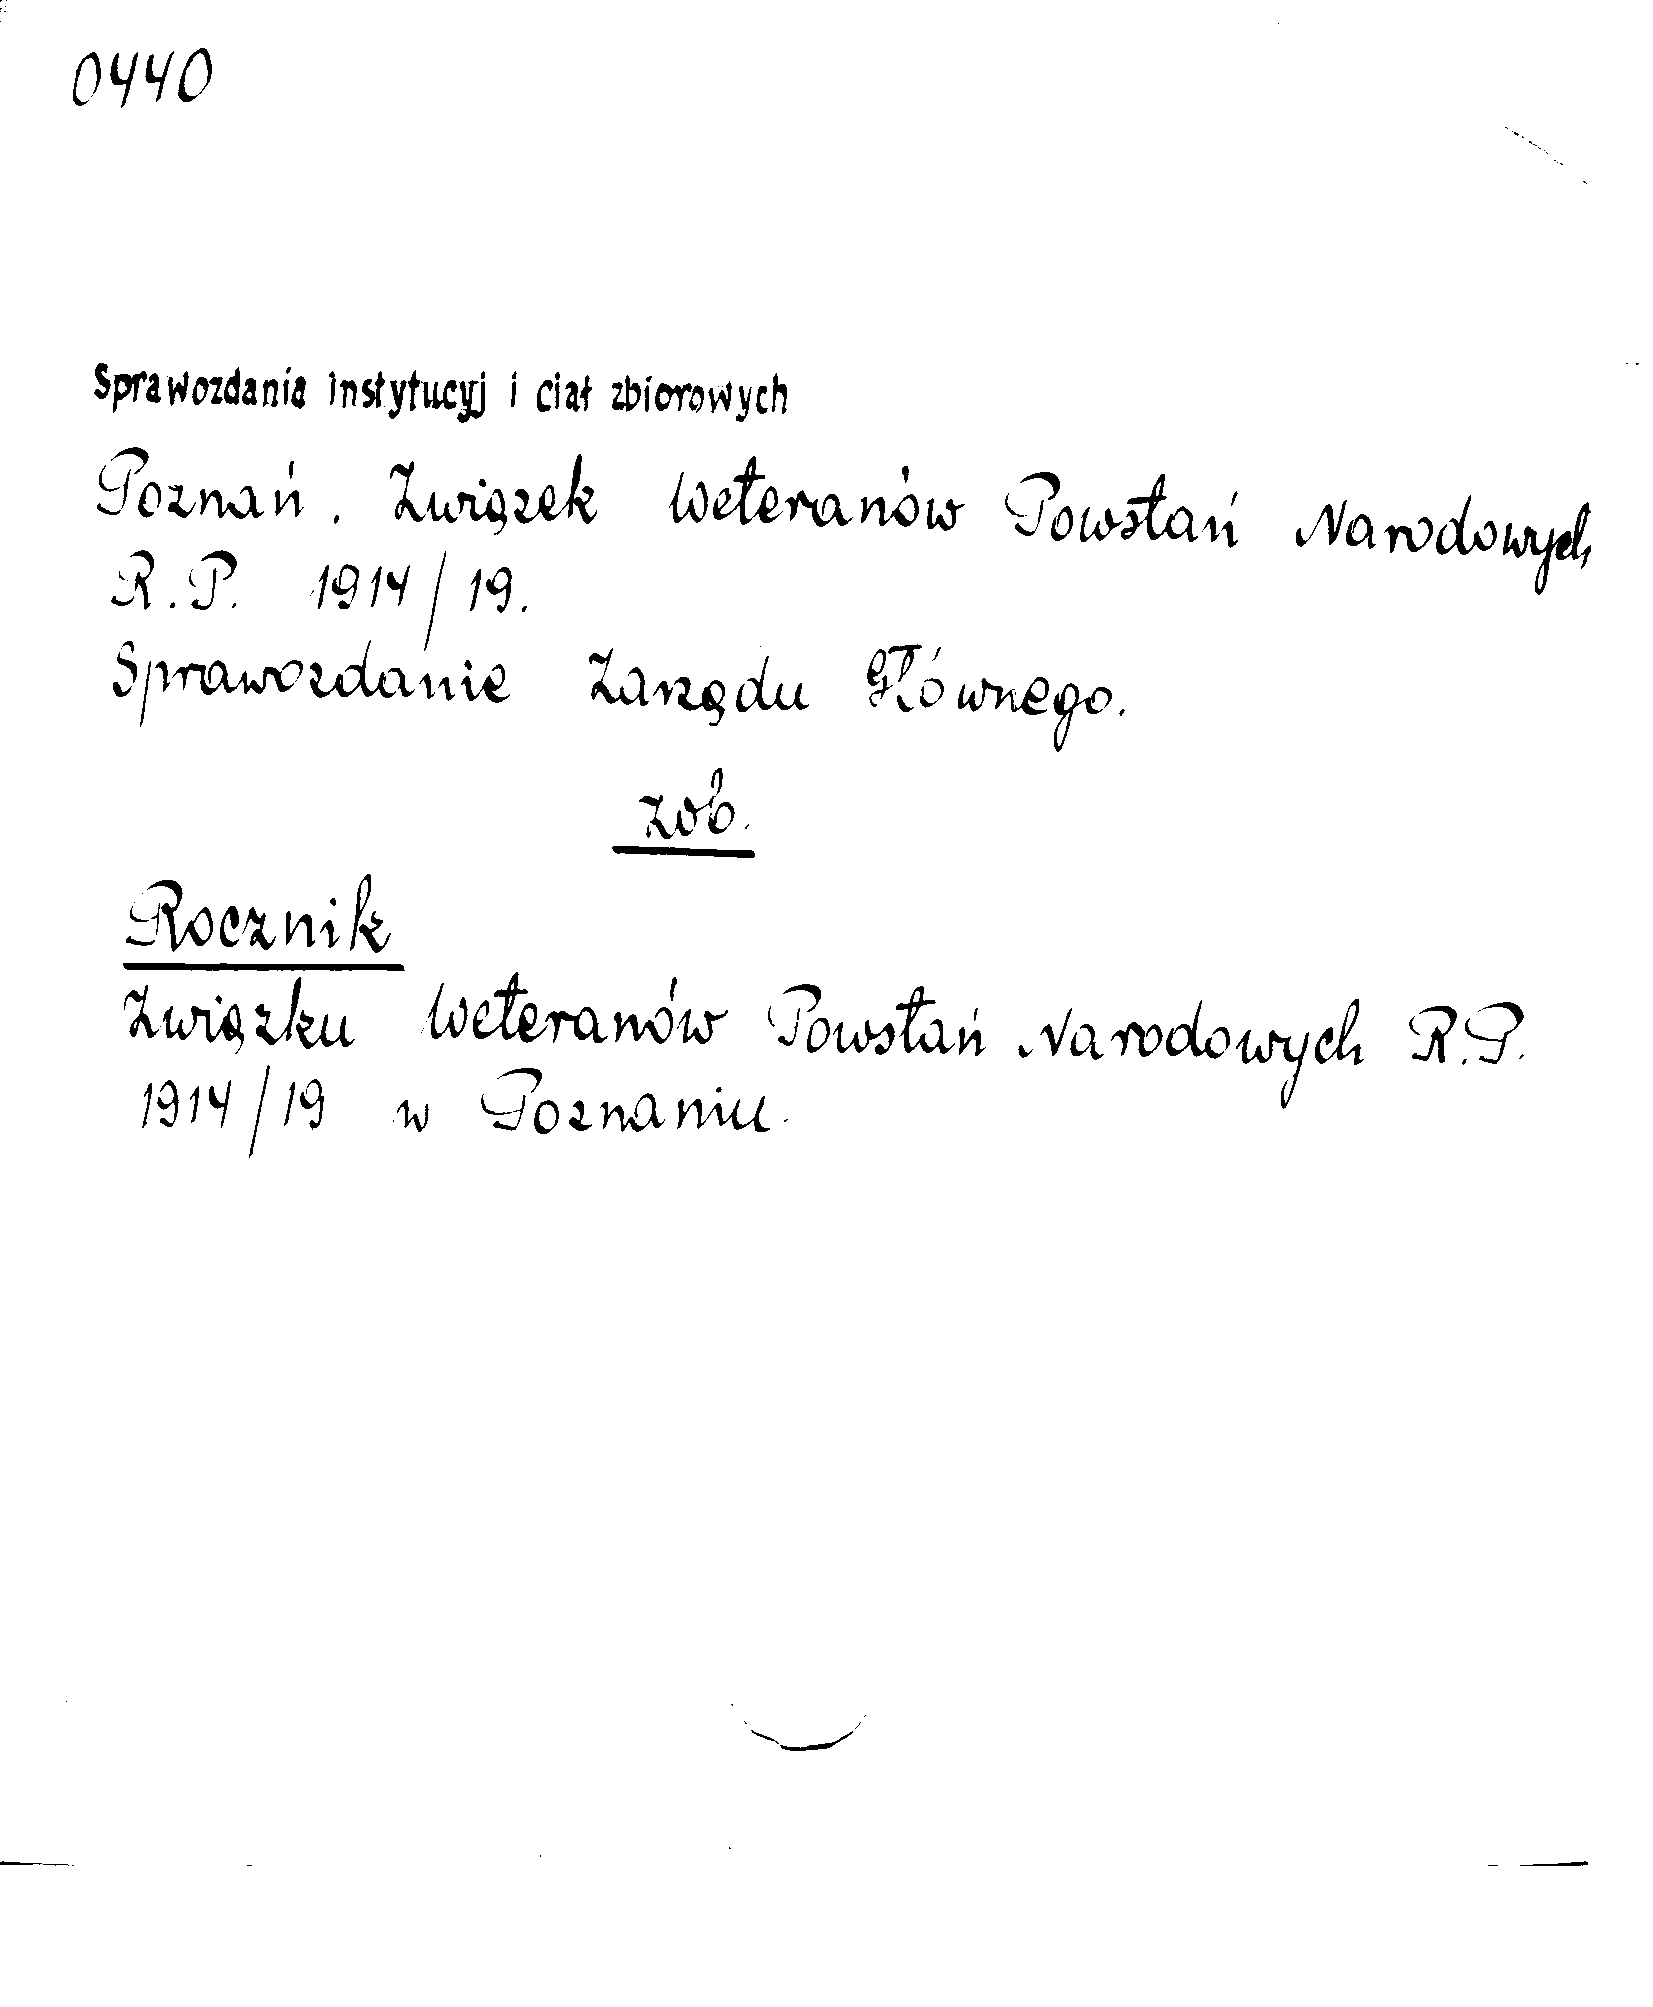 0440
Sprawozdania instytucyj i ciał zbiorowych
Poznań. Związek Weteranów Powstań Narodowych
R.P. 1914/19.
Sprawozdanie Zarządu Głównego.
zob.
Rocznik
Związku Weteranów Powstań Narodowych R.P.
1914/19 w Poznaniu.